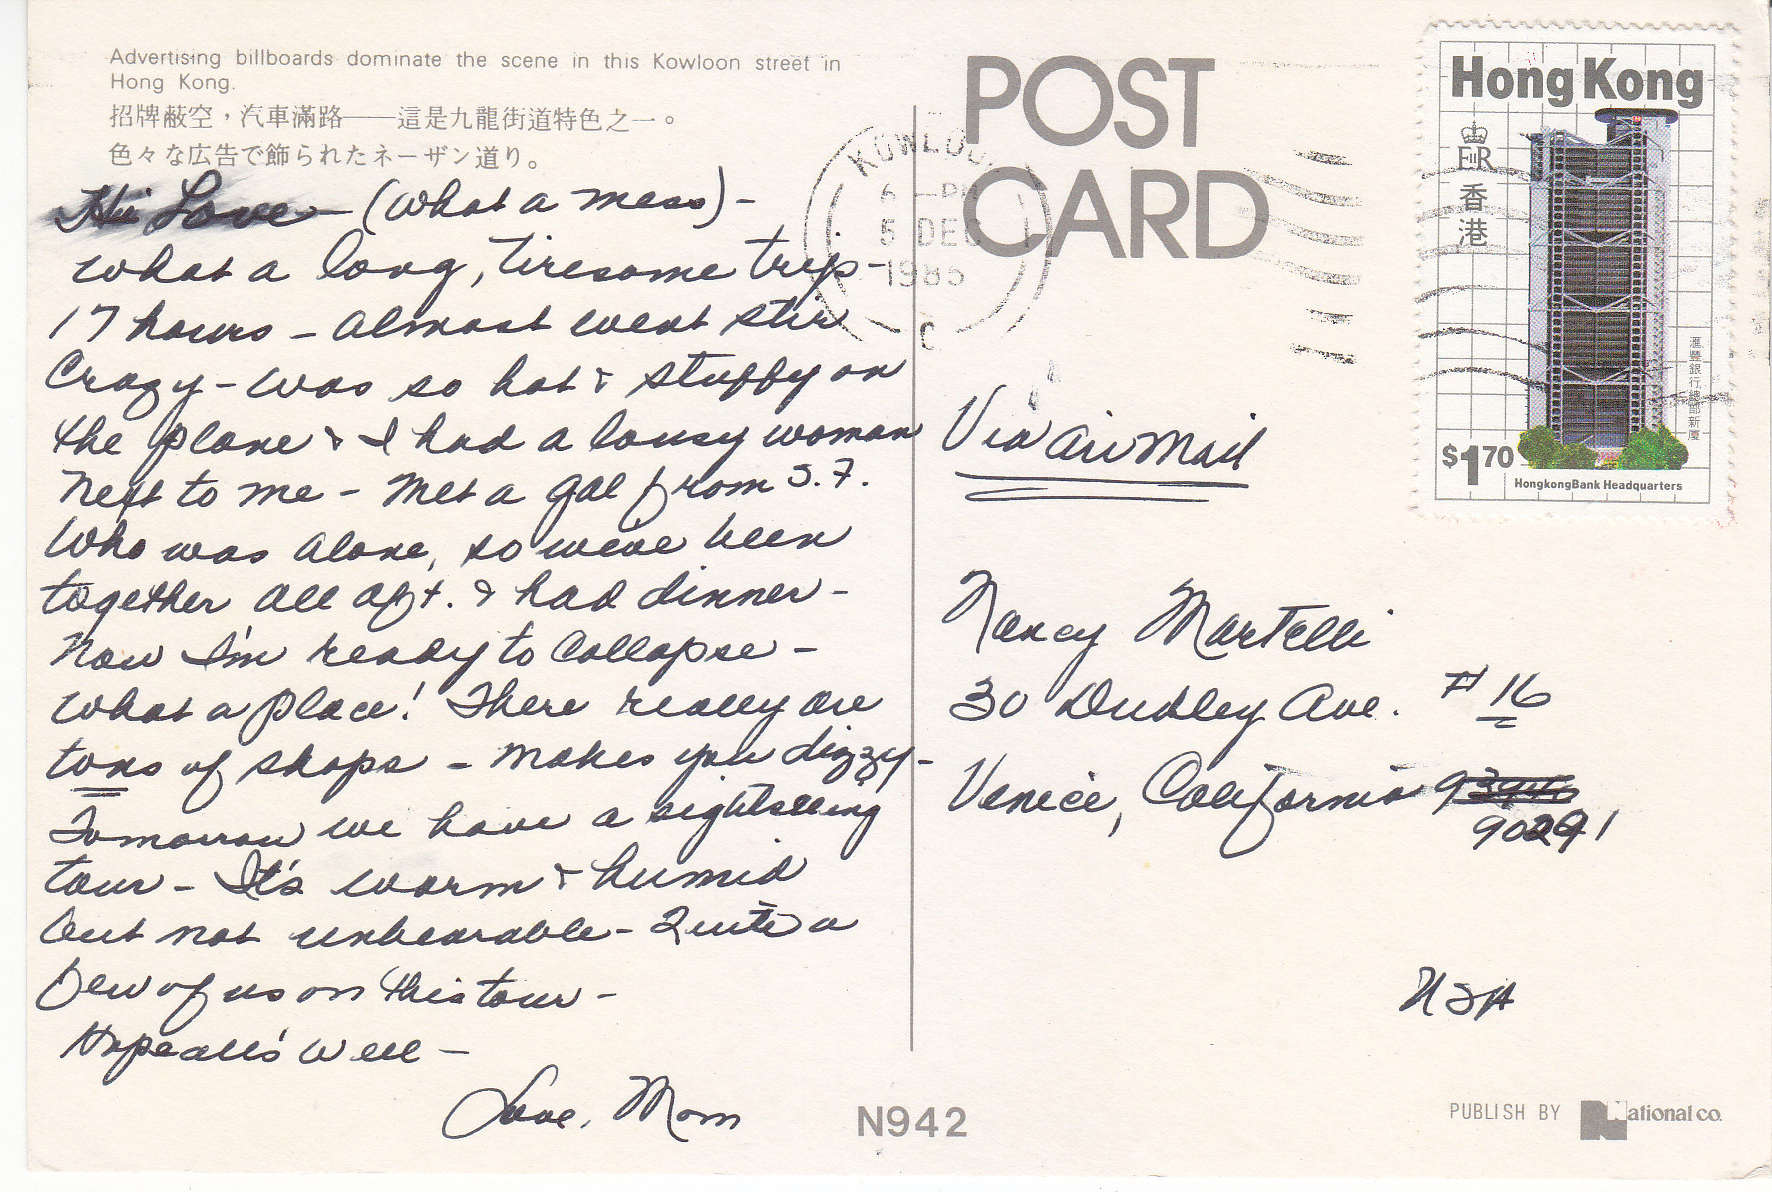 Advertising billboards dominate the scene in this Kowloon street in
Hong Kong.
招牌蔽空，汽車滿路——這是九龍街道特色之一。
色々な広告で飾られたネーザン道り。
Hi Love - (What a mess) -
What a long, tiresome trip -
17 hours - almost went stir
crazy - was so hot & stuffy on
the plane & I had a lousy woman
next to me - Met a gal from S.F.
who was alone, so we've been
together all aft. & had dinner -
Now I'm ready to collapse -
What a place! There really are
tons of shops - makes you dizzy -
Tomorrow we have a sightseeing
tour - It's warm & humid
but not unbearable - Quite a
few of us on this tour -
Hope all's well -
Love, Mom
POST
CARD
KOWLOON
6 - PM
5 DEC
1985
C
Hong Kong
EIIR
香港
滙豐銀行總部新廈
$1.70
HongkongBank Headquarters
Via Air Mail
Nancy Martelli
30 Dudley Ave. #16
Venice, California
90291
USA
N942
PUBLISH BY National co.